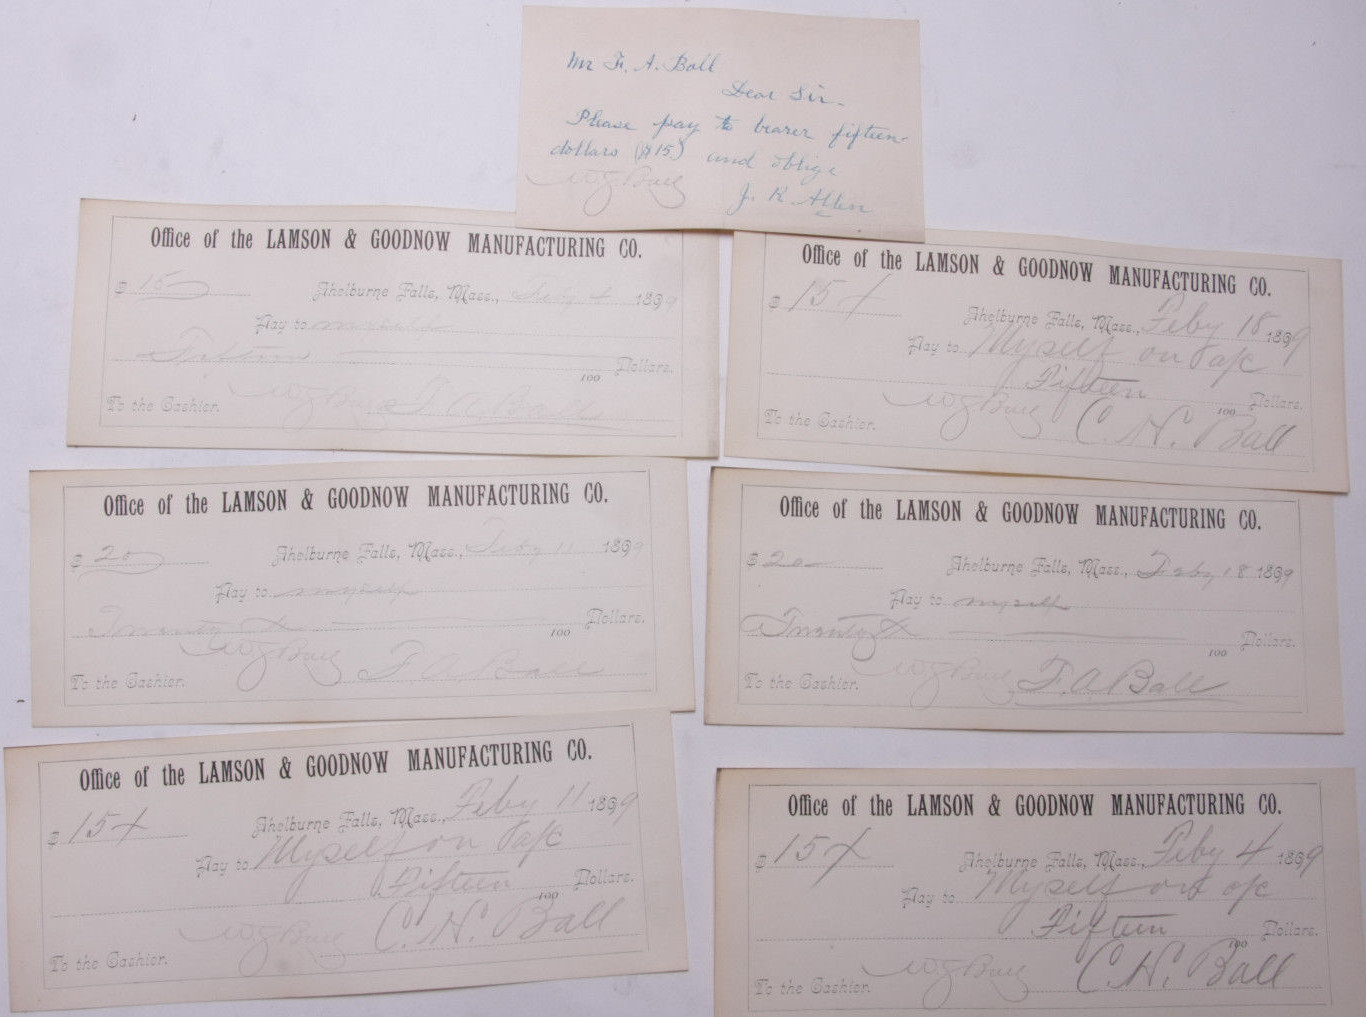 Mr F. A. Ball
Dear Sir -
Please pay to bearer fifteen
dollars ($15) and oblige
J. K. Allen
Office of the LAMSON & GOODNOW MANUFACTURING CO.
$ 15 Shelburne Falls, Mass., Feby 4 1899
Pay to myself
Fifteen 100 Dollars.
To the Cashier. F. A. Ball
Office of the LAMSON & GOODNOW MANUFACTURING CO.
$ 15 Shelburne Falls, Mass., Feby 18 1899
Pay to Myself on a/c
Fifteen 100 Dollars.
To the Cashier. C. H. Ball
Office of the LAMSON & GOODNOW MANUFACTURING CO.
$ 20 Shelburne Falls, Mass., Feby 11 1899
Pay to myself
Twenty 100 Dollars.
To the Cashier. F. A. Ball
Office of the LAMSON & GOODNOW MANUFACTURING CO.
$ 20 Shelburne Falls, Mass., Feby 18 1899
Pay to myself
Twenty 100 Dollars.
To the Cashier. F. A. Ball
Office of the LAMSON & GOODNOW MANUFACTURING CO.
$ 15 Shelburne Falls, Mass., Feby 11 1899
Pay to Myself on a/c
Fifteen 100 Dollars.
To the Cashier. C. H. Ball
Office of the LAMSON & GOODNOW MANUFACTURING CO.
$ 15 Shelburne Falls, Mass., Feby 4 1899
Pay to Myself on a/c
Fifteen 100 Dollars.
To the Cashier. C. H. Ball